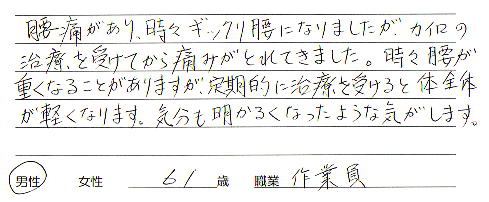 腰痛があり、時々ギックリ腰になりましたが、カイロの
治療を受けてから痛みがとれてきました。時々腰が
重くなることがありますが、定期的に治療を受けると体全体
が軽くなります。気分も明かるくなったような気がします。
男性 女性 61 歳 職業 作業員